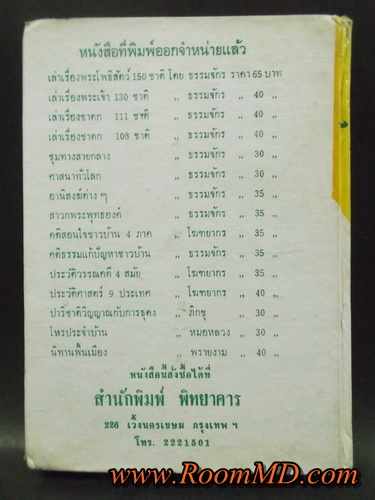 หนังสือที่พิมพ์ออกจำหน่ายแล้ว
เล่าเรื่องพระโพธิสัตว์ 150 ชาติ โดย ธรรมจักร ราคา 65 บาท
เล่าเรื่องพระเจ้า 130 ชาติ ,, ธรรมจักร ,, 40 ,,
เล่าเรื่องชาดก 111 ชาติ ,, ธรรมจักร ,, 40 ,,
เล่าเรื่องชาดก 108 ชาติ ,, ธรรมจักร ,, 40 ,,
ชุมทางสายกลาง ,, ธรรมจักร ,, 30 ,,
ศาสนาทั่วโลก ,, ธรรมจักร ,, 30 ,,
อานิสงฆ์ต่าง ๆ ,, ธรรมจักร ,, 35 ,,
สาวกพระพุทธองค์ ,, ธรรมจักร ,, 35 ,,
คติสอนใจชาวบ้าน 4 ภาค ,, โฆฑยากร ,, 35 ,,
คติธรรมแก้ปัญหาชาวบ้าน ,, ธรรมจักร ,, 35 ,,
ประวัติวรรณคดี 4 สมัย ,, โฆฑยากร ,, 35 ,,
ประวัติศาสตร์ 9 ประเทศ ,, โฆฑยากร ,, 40 ,,
ปาริชาติวิญญาณกับการธุดง ,, ภิกขุ ,, 30 ,,
โหรประจำบ้าน ,, หมอหลวง ,, 30 ,,
นิทานพื้นเมือง ,, พรายงาม ,, 40 ,,
หนังสือนี้สั่งซื้อได้ที่
สำนักพิมพ์ พิทยาคาร
226 เวิ้งนครเขษม กรุงเทพ ฯ
โทร. 2221501
www.RoomMD.com